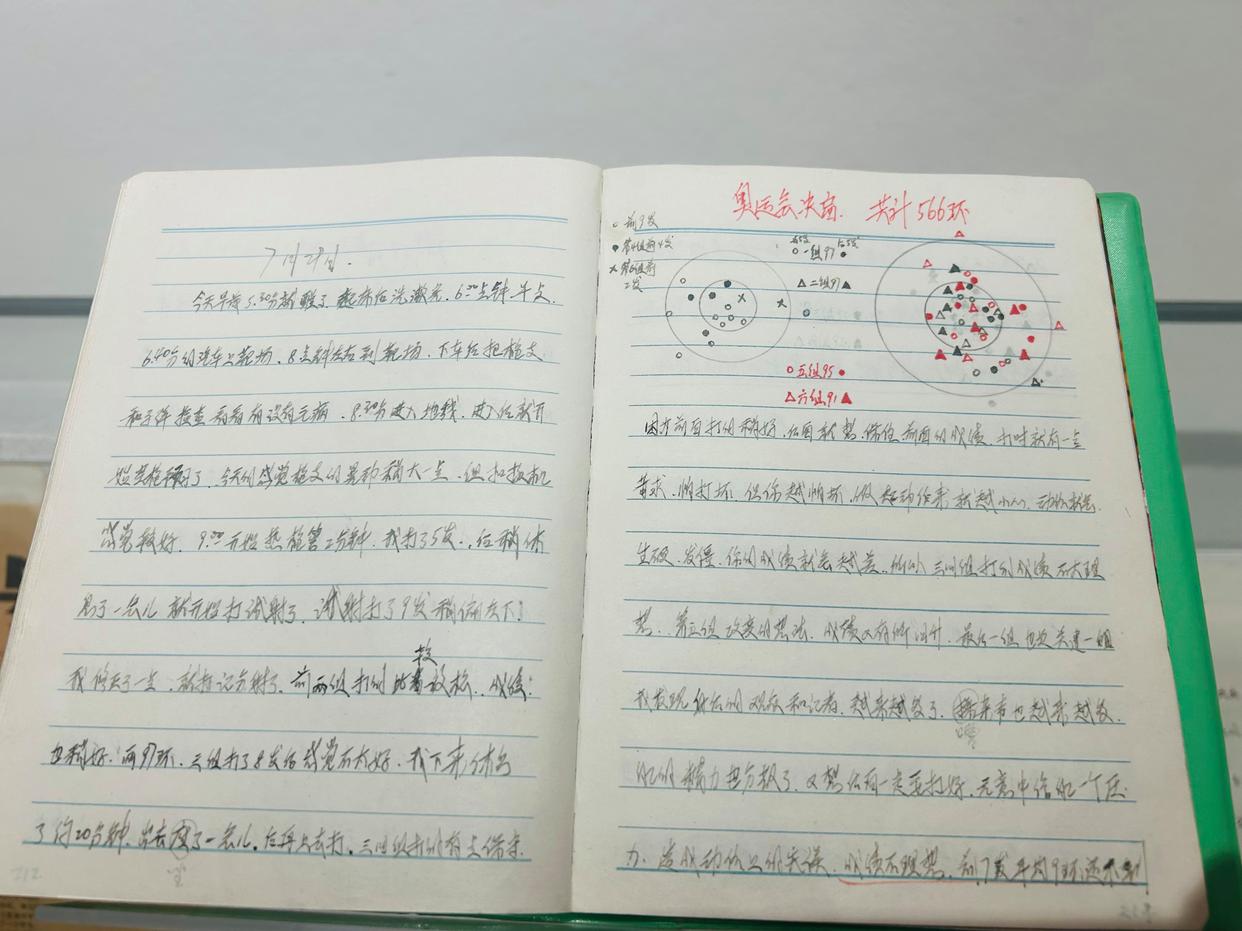 7月29日.
今天早晨5.30分就醒了.起床后洗漱完.6.00点钟早点.
6.40分的汽车上靶场.8点钟左右到靶场.下车后把枪支
和子弹检查看看有没有元病.8.30分进入地线.进入后就开
感觉较好.9.00开始热枪管二分钟.我打了5发.后稍休
息了一会儿就开始打试射了.试射打了9发稍偏左下.
我修去了一点.就打记分射了.前两组打的比较放松.成绩
较
也稍好.两97环.三组打了8发后感觉不太好.我下来休息
了约20分钟.出去座了一会儿.后再上去打.三四组打的有点保守
212
奥运会决赛. 共计566环
前9发
第4组前4发
第6组前
2发
一组97
二组97
五组95
六组91
因为前面打的稍好.后面就想保住前面的成绩.打时就有一点
苛求.怕打坏.但你越怕坏.做起动作来就越小心.动作就会
生硬.发僵.你的成绩就会越差.所以三四组打的成绩不太理
想.第五组改变的想法.成绩又有所回升.最后一组也是关键一组
我发现身后的观众和记者.越来越多了.摄来当也越来越多
的精力也分散了.又想后面一定要打好.无意中给的一个压
力.造成动作上的失误.成绩不理想.前7发平均9环还不到